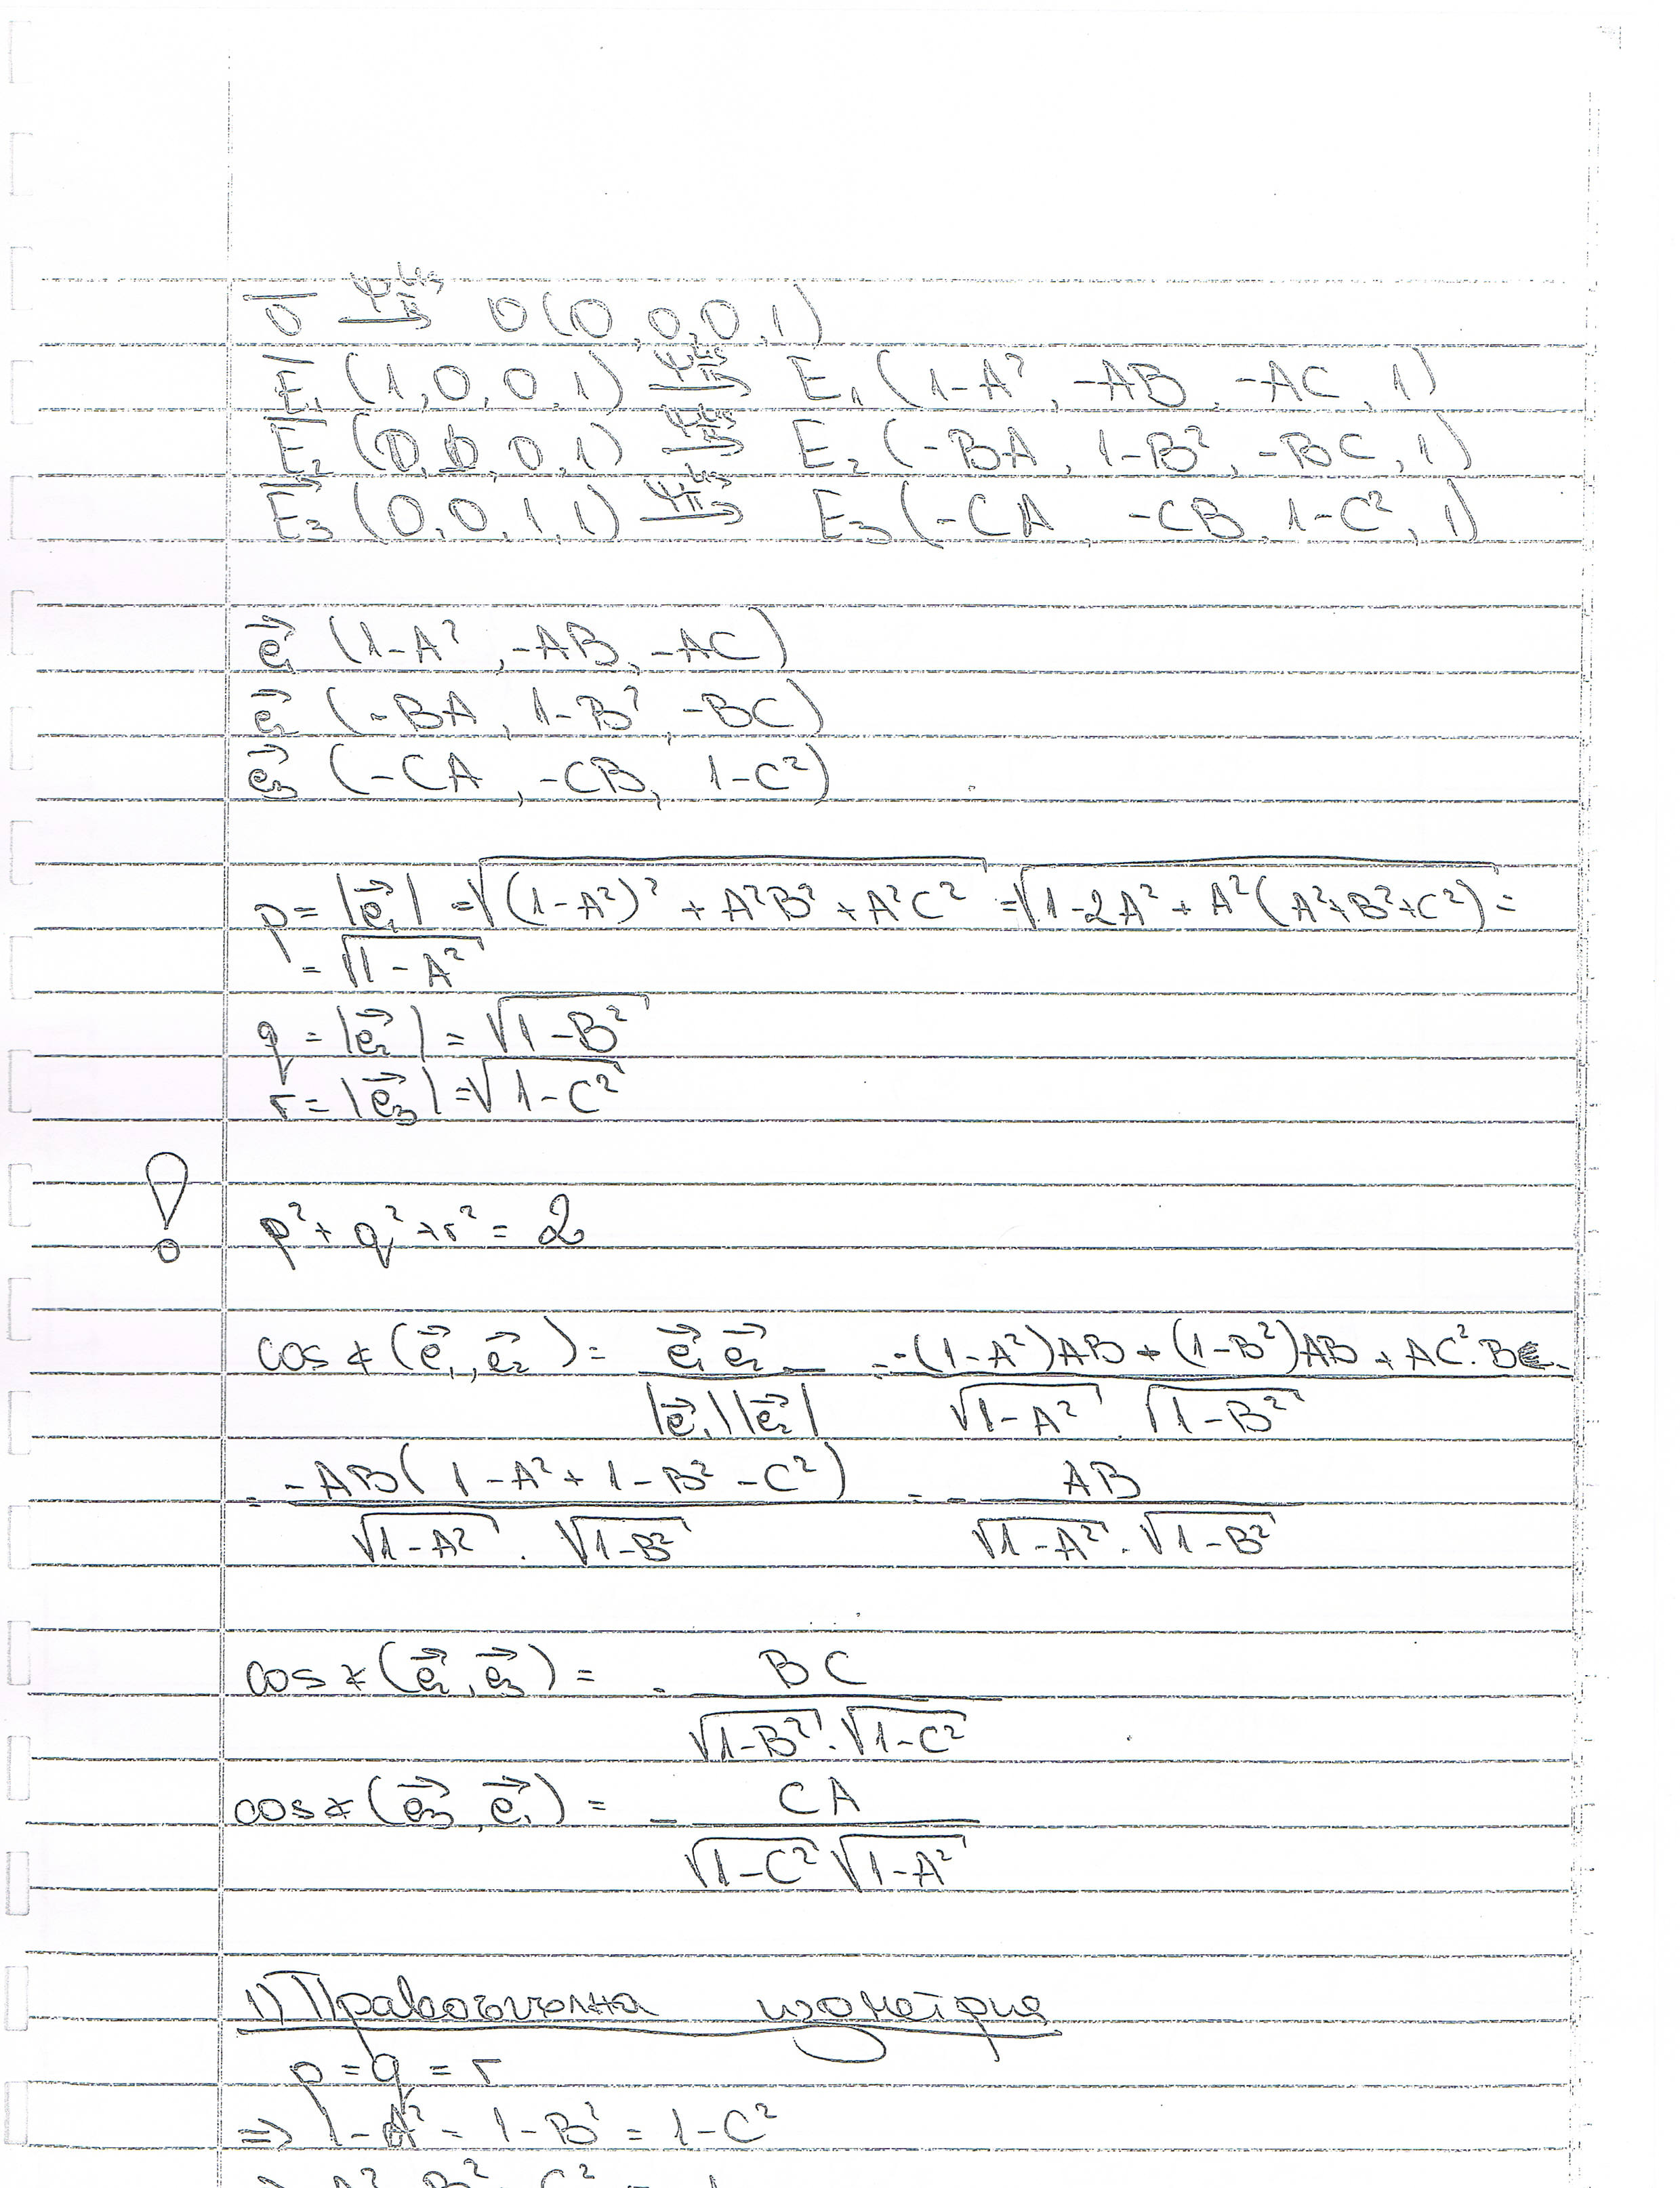 O̅ → O(0,0,0,1)
E̅₁(1,0,0,1) → E₁(1-A², -AB, -AC, 1)
E̅₂(0,1,0,1) → E₂(-BA, 1-B², -BC, 1)
E̅₃(0,0,1,1) → E₃(-CA, -CB, 1-C², 1)
e⃗₁ (1-A², -AB, -AC)
e⃗₂ (-BA, 1-B², -BC)
e⃗₃ (-CA, -CB, 1-C²)
p = |e⃗₁| = √((1-A²)² + A²B² + A²C²) = √(1-2A² + A²(A²+B²+C²)) =
= √(1-A²)
q = |e⃗₂| = √(1-B²)
r = |e⃗₃| = √(1-C²)
! p² + q² + r² = 2
cos∢(e⃗₁, e⃗₂) = e⃗₁e⃗₂ / |e⃗₁||e⃗₂| = -(1-A²)AB + (1-B²)AB + AC².B / √(1-A²) . √(1-B²)
= -AB(1-A² + 1-B² - C²) / √(1-A²) . √(1-B²) = - AB / √(1-A²) . √(1-B²)
cos∢(e⃗₂, e⃗₃) = - BC / √(1-B²) . √(1-C²)
cos∢(e⃗₃, e⃗₁) = - CA / √(1-C²) √(1-A²)
1) Правоъгълна изометрия
p = q = r
=> 1-A² = 1-B² = 1-C²